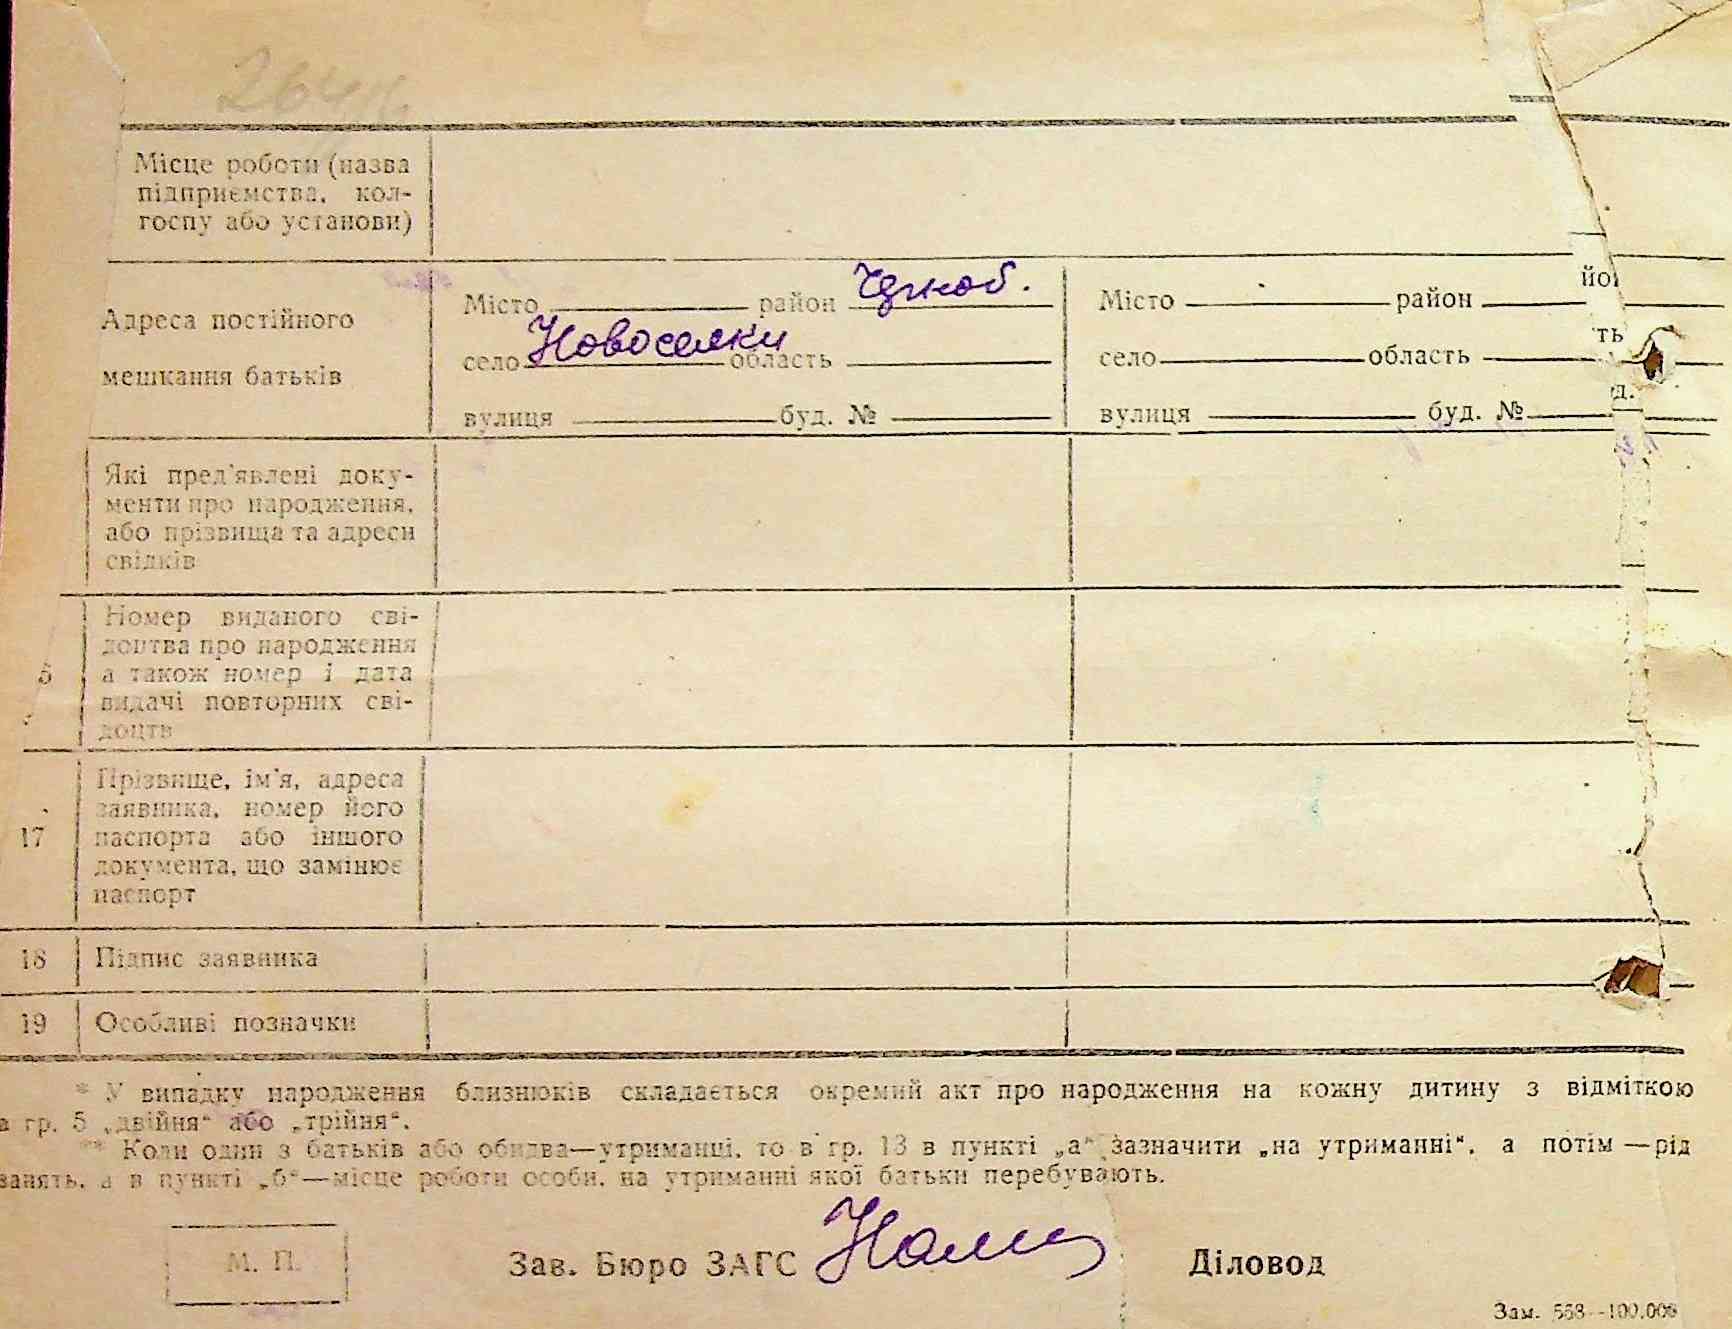 264/16
Місце роботи (назва
підприємства, кол-
госпу або установи)
Адреса постійного
мешкання батьків
Місто район Чорноб.
село Новоселки область
вулиця буд. №
Місто район
село область
вулиця буд. №
йо
ть
д.
Які пред'явлені доку-
менти про народження,
або прізвища та адреси
свідків
Номер виданого сві-
доцтва про народження
5 а також номер і дата
видачі повторних сві-
доцтв
Прізвище, ім'я, адреса
заявника, номер його
17 паспорта або іншого
документа, що замінює
паспорт
18 Підпис заявника
19 Особливі позначки
* У випадку народження близнюків складається окремий акт про народження на кожну дитину з відміткою
в гр. 5 „двійня“ або „трійня“.
** Коли один з батьків або обидва—утриманці, то в гр. 13 в пункті „а“ зазначити „на утриманні“, а потім—рід
занять, а в пункті „б“—місце роботи особи, на утриманні якої батьки перебувають.
М. П.
Зав. Бюро ЗАГС
Діловод
Зам. 568--100.000